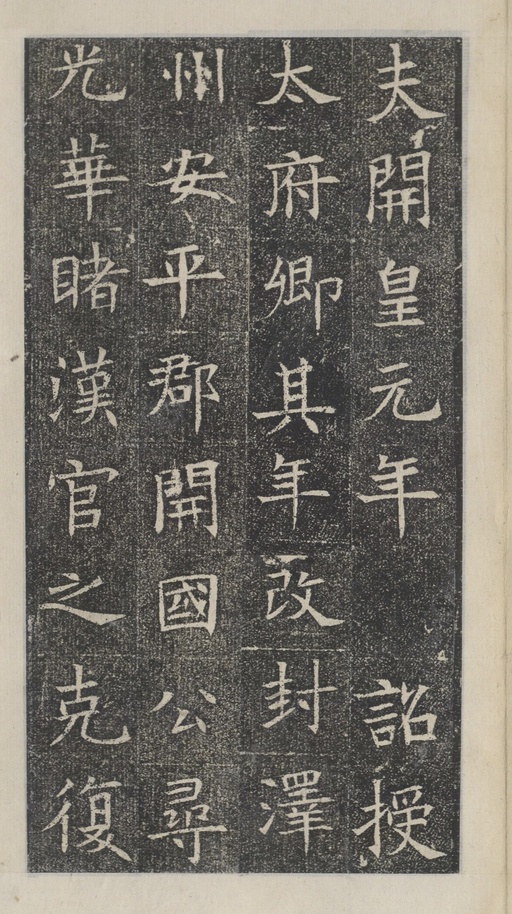 夫開皇元年 詔授
太府卿其年改封澤
州安平郡開國公尋
光華睹漢官之克復